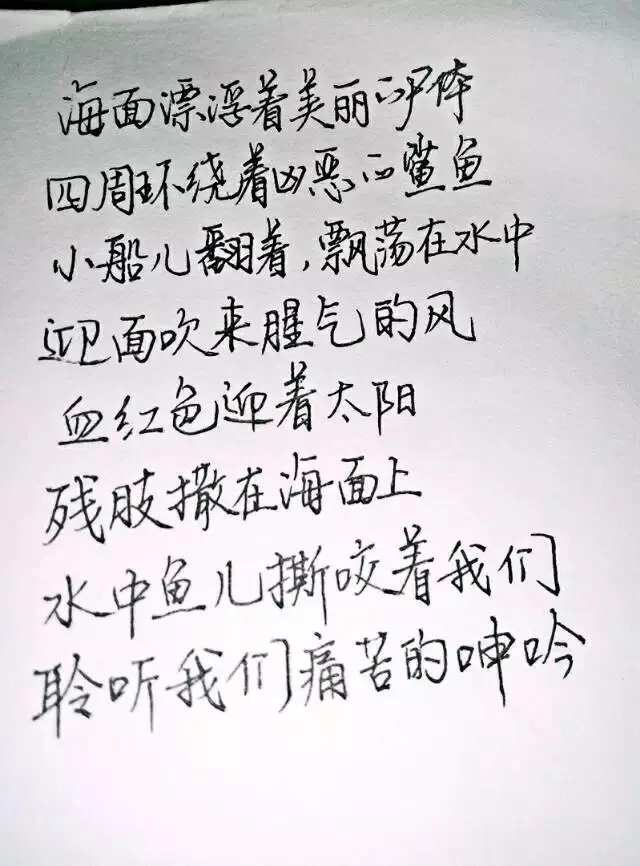 海面漂浮着美丽的尸体
四周环绕着凶恶的鲨鱼
小船儿翻着,飘荡在水中
迎面吹来腥气的风
血红色迎着太阳
残肢撒在海面上
水中鱼儿撕咬着我们
聆听我们痛苦的呻吟